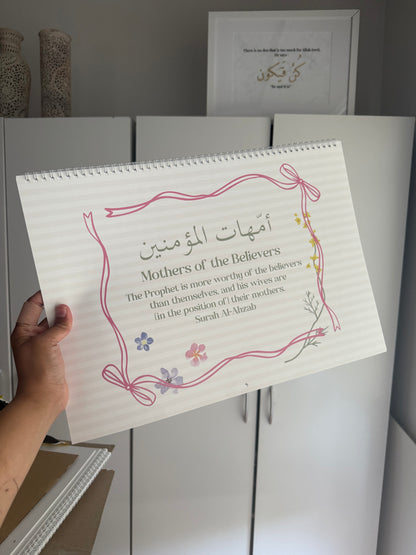 There is no dua that is too much for Allah (swt),
He says -
كُنْ فَيَكُون
"Be and it is"
أمّهات المؤمنين
Mothers of the Believers
The Prophet is more worthy of the believers
than themselves, and his wives are
[in the position of] their mothers.
Surah Al-Ahzab